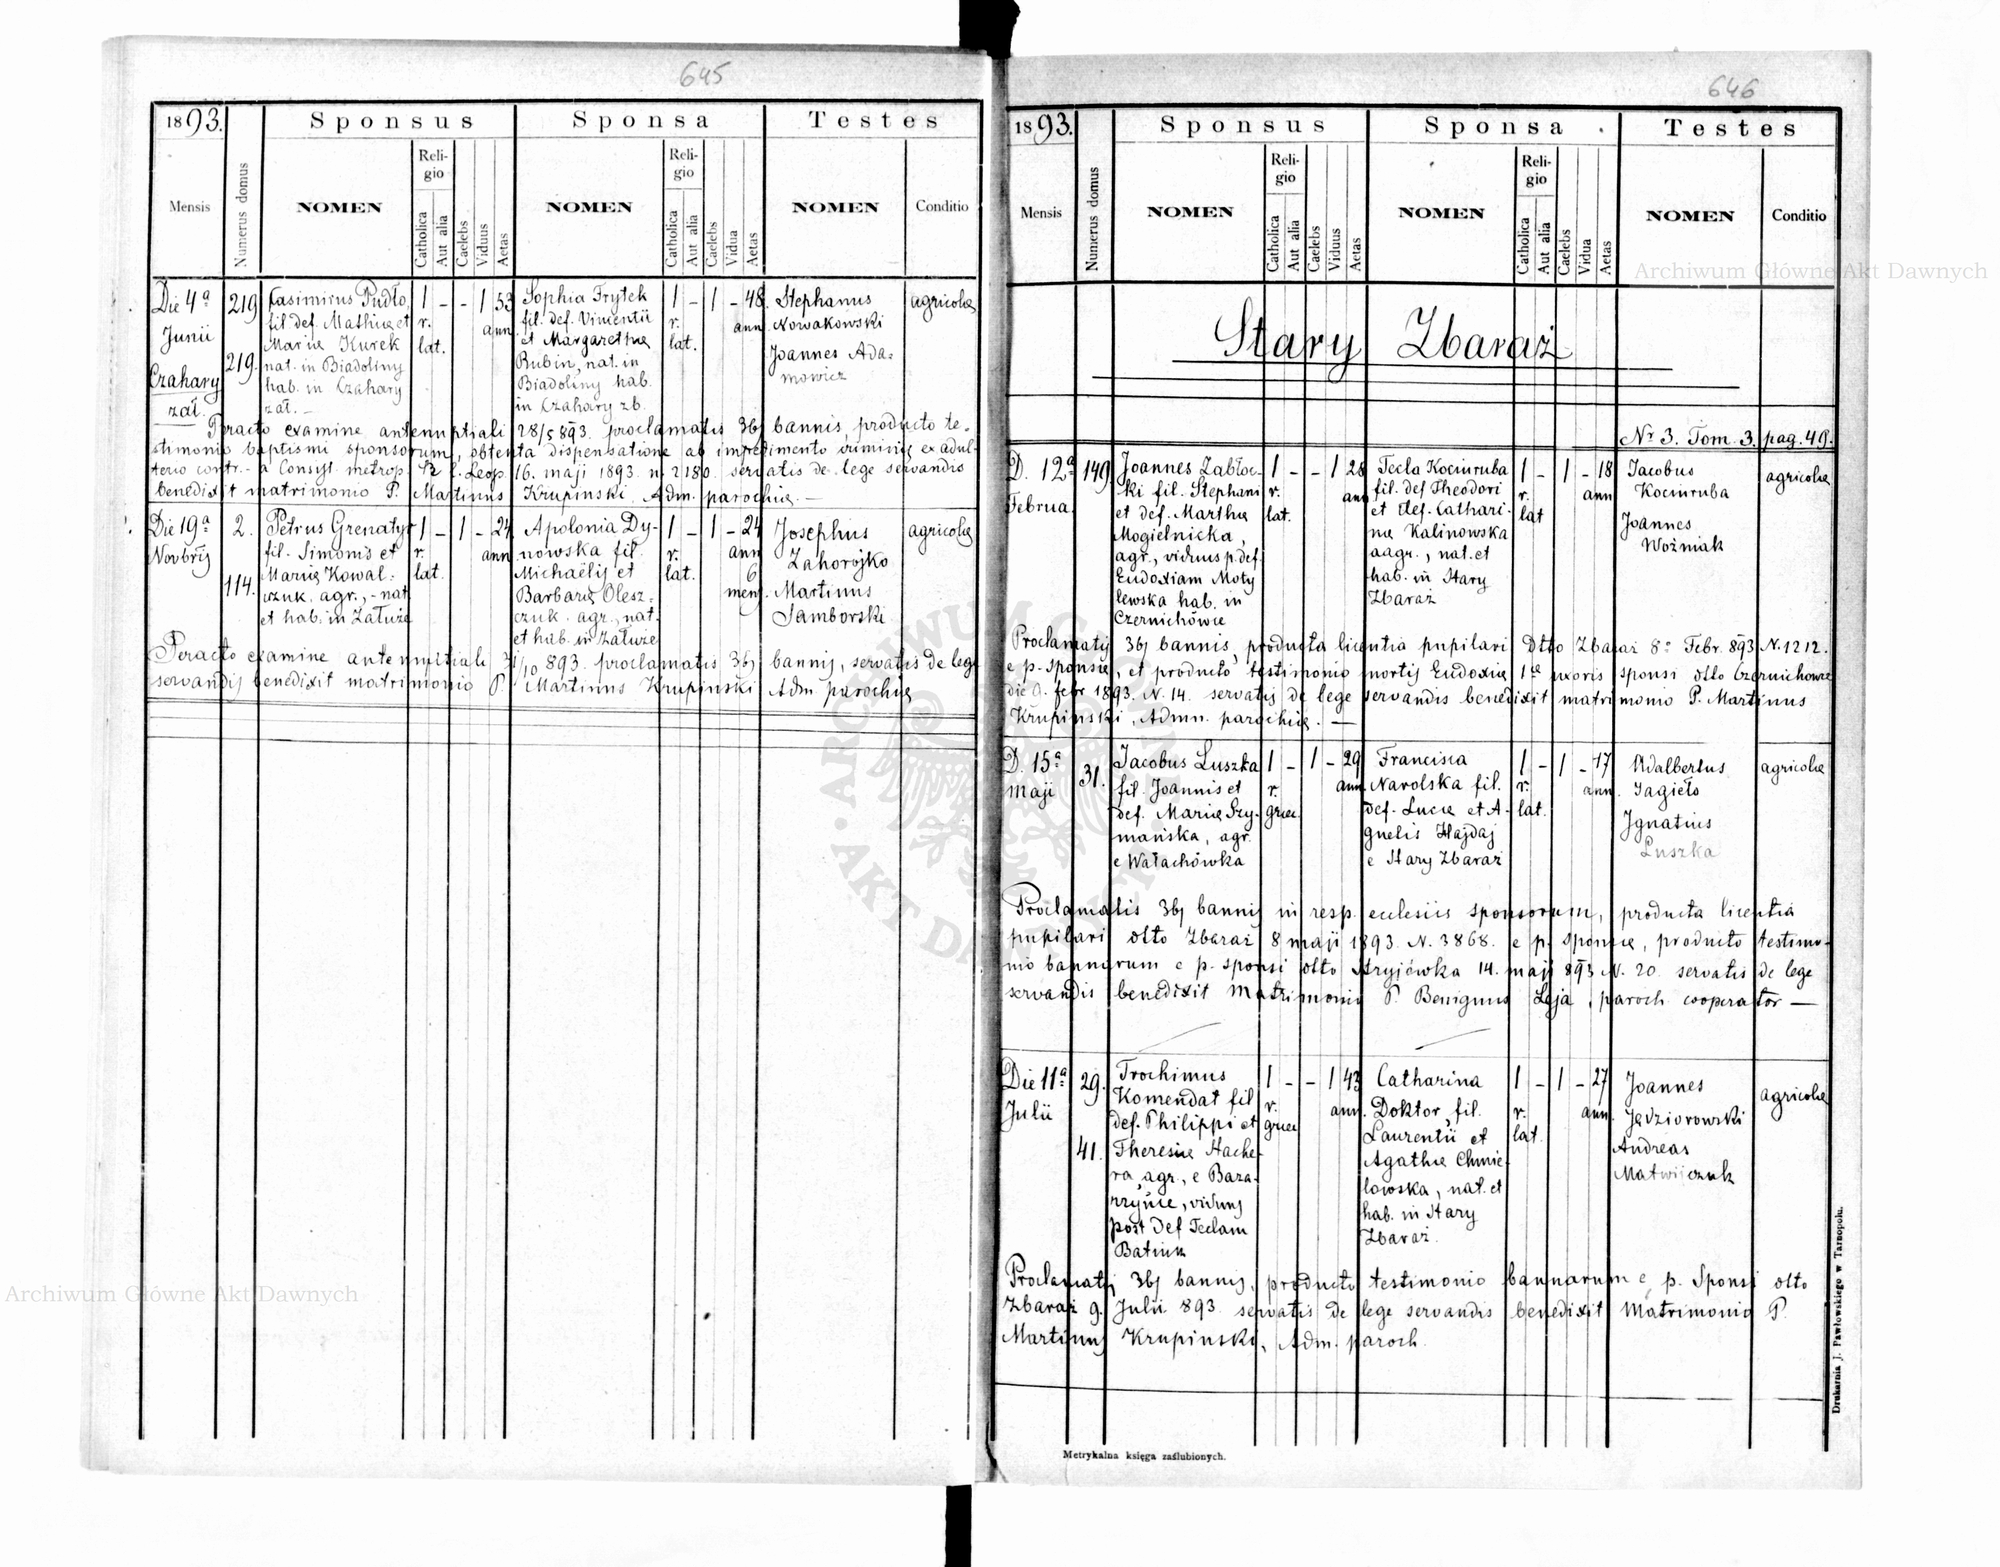 645
1893.
Sponsus
Sponsa
Testes
Mensis
Numerus domus
NOMEN
Religio
Catholica
Aut alia
Caelebs
Viduus
Aetas
NOMEN
Religio
Catholica
Aut alia
Caelebs
Vidua
Aetas
NOMEN
Conditio
Die 4ª
Junii
Czahary
zał.
219
219.
Casimirus Pudło,
fil. def. Mathiæ et
Mariæ Kurek
nat. in Biadoliny
hab. in Czahary
zał. —
1 - - 1 53
r. ann
lat.
Sophia Frytek
fil. def. Vincentii
et Margarethæ
Rubin, nat. in
Biadoliny hab.
in Czahary zb.
1 - 1 - 48
r. ann.
lat.
Stephanus
Nowakowski
Joannes Ada-
mowicz
agricolæ
Peracto examine antenuptiali 28/5 893. proclamatis 3bj bannis, producto te-
stimonio baptismi sponsorum, obtenta dispensatione ab impedimento criminis ex adul-
terio contr. - a Consyst. metrop. r. l. Leop. 16. maji 1893 n. 2180. servatis de lege servandis
benedixit matrimonio P. Martinus Krupinski, Adm. parochiæ. —
Die 19ª
Novbrij
2.
114.
Petrus Grenatyr
fil. Simonis et
Mariæ Kowal-
czuk, agr., - nat
et hab. in Załuże
1 - 1 - 24
r. ann
lat.
Apolonia Dy-
nowska fil.
Michaëlij et
Barbaræ Olesz-
czuk. agr., nat.
et hab. in Załuże
1 - 1 - 24
r. ann
lat. 6
mens.
Josephus
Zahorojko
Martinus
Samborski
agricolæ
Peracto examine antenuptiali 31/10 893. proclamatis 3bj bannij, servatis de lege
servandij benedixit matrimonio P. Martinus Krupinski Adm. parochiæ
646
1893.
Sponsus
Sponsa
Testes
Mensis
Numerus domus
NOMEN
Religio
Catholica
Aut alia
Caelebs
Viduus
Aetas
NOMEN
Religio
Catholica
Aut alia
Caelebs
Vidua
Aetas
NOMEN
Conditio
Stary Zbaraż
Nr 3. Tom. 3. pag. 49.
D. 12ª
Februa.
149
Joannes Zabłoc-
ki fil. Stephani
et def. Marthæ
Mogielnicka,
agr., viduus p. def.
Eudoxiam Moty
lewska hab. in
Czernichówce
1 - - 1 28
r. ann
lat.
Tecla Kociuruba
fil. def Theodori
et def. Cathari-
næ Kalinowska
aagr., nat. et
hab. in Stary
Zbaraż
1 - 1 - 18
r. ann
lat
Jacobus
Kociuruba
Joannes
Woźniak
agricolæ
Proclamatij 3bj bannis, producta licentia pupilari dtto Zbaraż 8ª Febr. 893 N. 1212.
e p. sponsæ, et producto testimonio mortij Eudoxiæ 1ae uxoris sponsi dtto Czernichowce
die 9. febr 1893. N. 14. servatij de lege servandis benedixit matrimonio P. Martinus
Krupinski, Admn. parochiæ. —
D. 15ª
Maji
31.
Jacobus Luszka
fil. Joannis et
def. Mariæ Szy-
mańska, agr.
e Wałachówka
1 - 1 - 29
r. ann
græc.
Francisca
Narolska fil.
def. Lucæ et A-
gnetis Hajdaj
e Stary Zbaraż
1 - 1 - 17
r. ann.
lat.
Adalbertus
Jagieło
Ignatius
Luszka
agricolæ
Proclamatis 3bj bannij in resp. eclesiis sponsorum, producta licentia
pupilari dtto Zbaraż 8 maji 1893. N. 3868. e p. sponsæ, producto testimo-
nio bannorum e p. sponsi dtto Stryjówka 14. maji 893 N. 20. servatis de lege
servandis benedixit Matrimonio P. Benignus Leja, paroch. cooperator —
Die 11ª
Julii
29.
41.
Trochimus
Komendat fil
def. Philippi et
Theresiæ Hache-
ra, agr., e Baza-
rzyńce, viduus
post def Teclam
Batiuk
1 - - 1 43
r. ann.
græc
Catharina
Doktor, fil.
Laurentii et
Agathæ Chmie-
lowska, nat. et
hab. in Stary
Zbaraż.
1 - 1 - 27
r. ann.
lat.
Joannes
Jędziorowski
Andreas
Matwijczuk
agricolæ
Proclamatij 3bj bannij, producto testimonio bannorum e p. Sponsi dtto
Zbaraż 9. Julii 893. servatis de lege servandis benedixit Matrimonio P.
Martinus Krupinski, Adm. paroch.
Metrykalna księga zaślubionych.
Drukarnia J. Pawłowskiego w Tarnopolu.
Archiwum Główne Akt Dawnych
Archiwum Główne Akt Dawnych
ARCHIWUM GŁÓWNE AKT DAWNYCH